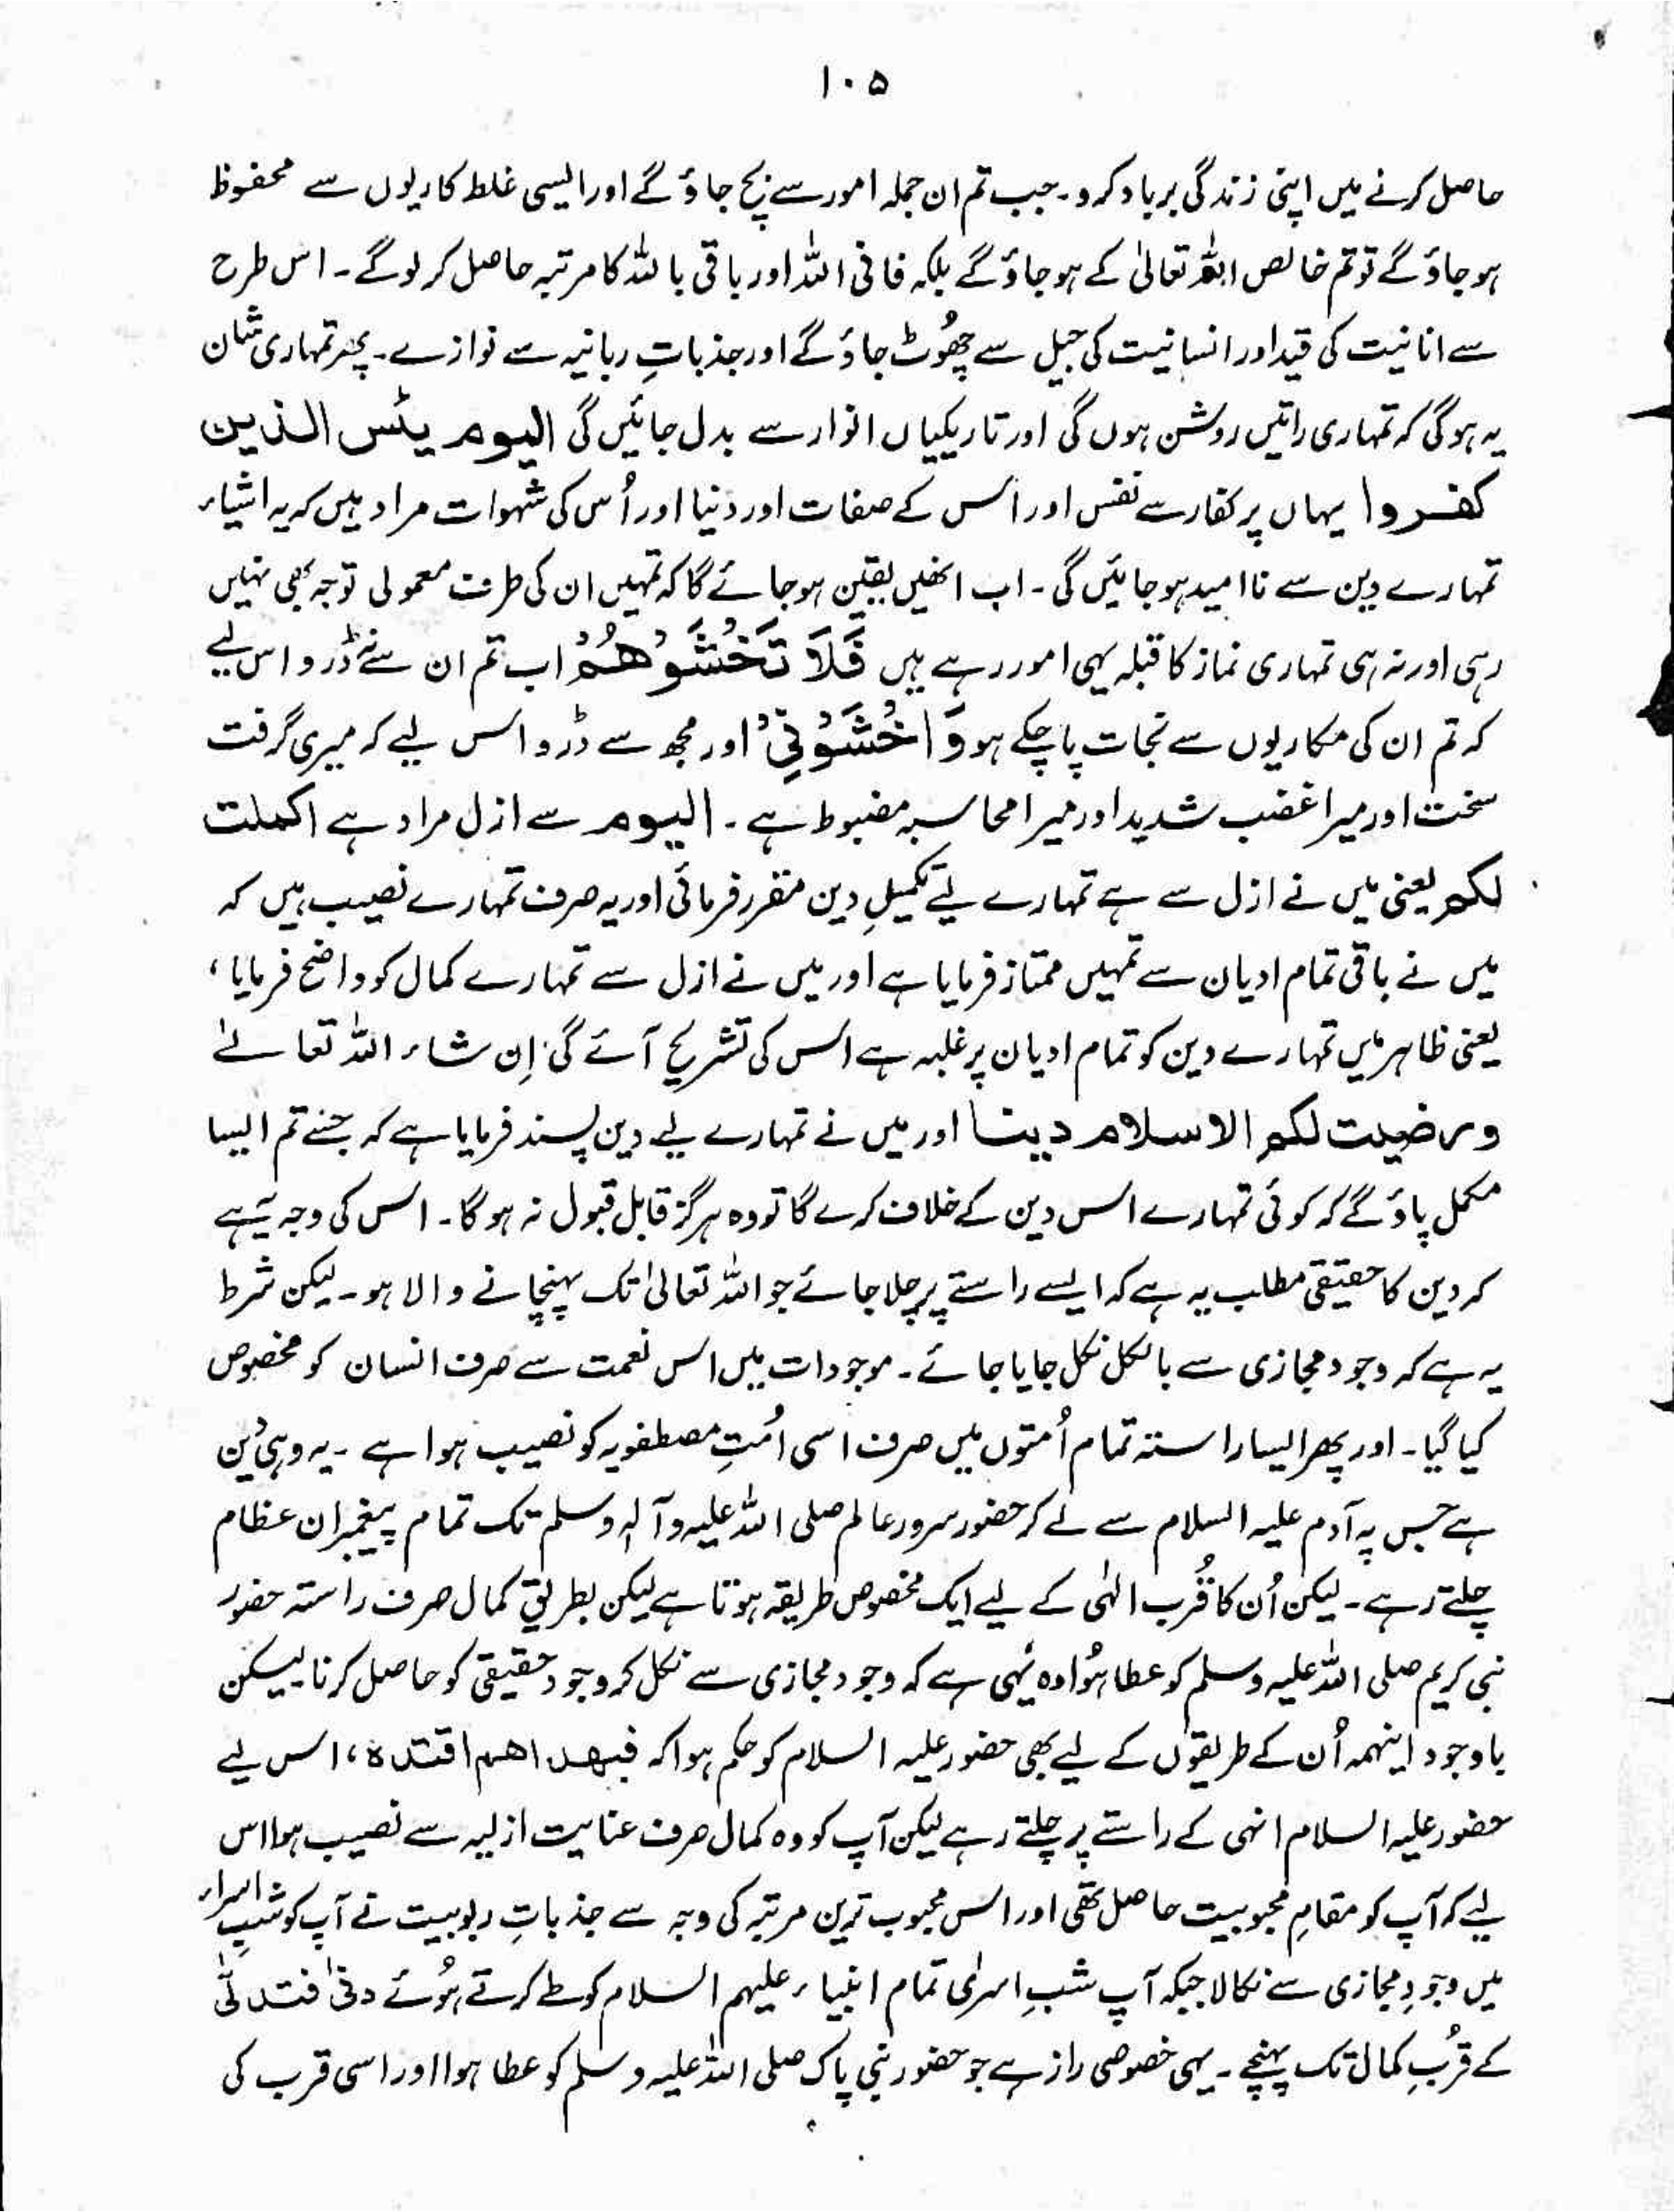 ۱۰۵
حاصل کرنے میں اپنی زندگی برباد کرو۔ جب تم ان جملہ امور سے بچ جاؤ گے اور ایسی غلط کاریوں سے محفوظ
ہو جاؤ گے تو تم خالص اللہ تعالیٰ کے ہو جاؤ گے بلکہ فانی اللہ اور باقی باللہ کا مرتبہ حاصل کر لو گے۔ اس طرح
سے انانیت کی قید اور انسانیت کی جیل سے چھُوٹ جاؤ گے اور جذباتِ ربانیہ سے نوازے۔ پھر تمہاری شان
یہ ہو گی کہ تمہاری راتیں روشن ہوں گی اور تاریکیاں انوار سے بدل جائیں گی الیوم یئس الذین
کفروا یہاں پر کفار سے نفس اور اس کے صفات اور دنیا اور اُس کی شہوات مراد ہیں کہ یہ اشیاء
تمہارے دین سے ناامید ہو جائیں گی۔ اب انھیں یقین ہو جائے گا کہ تمہیں ان کی طرف معمولی توجہ بھی نہیں
رہی اور نہ ہی تمہاری نماز کا قبلہ یہی امور رہے ہیں فَلَا تَخْشَوْهُمْ اب تم ان سے نہ ڈرو اس لیے
کہ تم ان کی مکاریوں سے نجات پا چکے ہو وَاخْشَوْنِیْ اور مجھ سے ڈرو اس لیے کہ میری گرفت
سخت اور میرا غضب شدید اور میرا محاسبہ مضبوط ہے۔ الیوم سے ازل مراد ہے اکملت
لکم یعنی میں نے ازل سے ہے تمہارے لیے تکمیلِ دین مقرر فرمائی اور یہ صرف تمہارے نصیب ہیں کہ
میں نے باقی تمام ادیان سے تمہیں ممتاز فرمایا ہے اور میں نے ازل سے تمہارے کمال کو واضح فرمایا،
یعنی ظاہر میں تمہارے دین کو تمام ادیان پر غلبہ ہے اس کی تشریح آئے گی اِن شاء اللہ تعالےٰ
ورضیت لکم الاسلام دینا اور میں نے تمہارے لیے دین پسند فرمایا ہے کہ جسے تم ایسا
مکمل پاؤ گے کہ کوئی تمہارے اس دین کے خلاف کرے گا تو وہ ہرگز قابل قبول نہ ہو گا۔ اس کی وجہ یہ ہے
کہ دین کا حقیقی مطلب یہ ہے کہ ایسے راستے پر چلا جائے جو اللہ تعالیٰ تک پہنچانے والا ہو۔ لیکن شرط
یہ ہے کہ وجود مجازی سے بالکل نکل جایا جائے۔ موجودات میں اس نعمت سے صرف انسان کو مخصوص
کیا گیا۔ اور پھر ایسا راستہ تمام اُمتوں میں صرف اسی اُمتِ مصطفویہ کو نصیب ہوا ہے۔ یہ وہی دین
ہے جس پہ آدم علیہ السلام سے لے کر حضور سرور عالم صلی اللہ علیہ وآلہٖ وسلم تک تمام پیغمبران عظام
چلتے رہے۔ لیکن اُن کا قُرب الٰہی کے لیے ایک مخصوص طریقہ ہوتا ہے لیکن بطریق کمال صرف راستہ حضور
نبی کریم صلی اللہ علیہ وسلم کو عطا ہُوا وہ یہی ہے کہ وجود مجازی سے نکل کر وجود حقیقی کو حاصل کرنا لیکن
باوجود اینہمہ اُن کے طریقوں کے لیے بھی حضور علیہ السلام کو حکم ہوا کہ فبھداھم اقتدہ، اس لیے
حضور علیہ السلام انہی کے راستے پر چلتے رہے لیکن آپ کو وہ کمال صرف عنایت ازلیہ سے نصیب ہوا اس
لیے کہ آپ کو مقامِ محبوبیت حاصل تھی اور اس محبوب ترین مرتبہ کی وجہ سے جذباتِ ربوبیت نے آپ کو شبِ اسراء
میں وجودِ مجازی سے نکالا جبکہ آپ شبِ اسرٰی تمام انبیاء علیہم السلام کو طے کرتے ہُوئے دنیٰ فتدلّٰی
کے قُربِ کمال تک پہنچے۔ یہی خصوصی راز ہے جو حضور نبی پاک صلی اللہ علیہ وسلم کو عطا ہوا اور اسی قرب کی